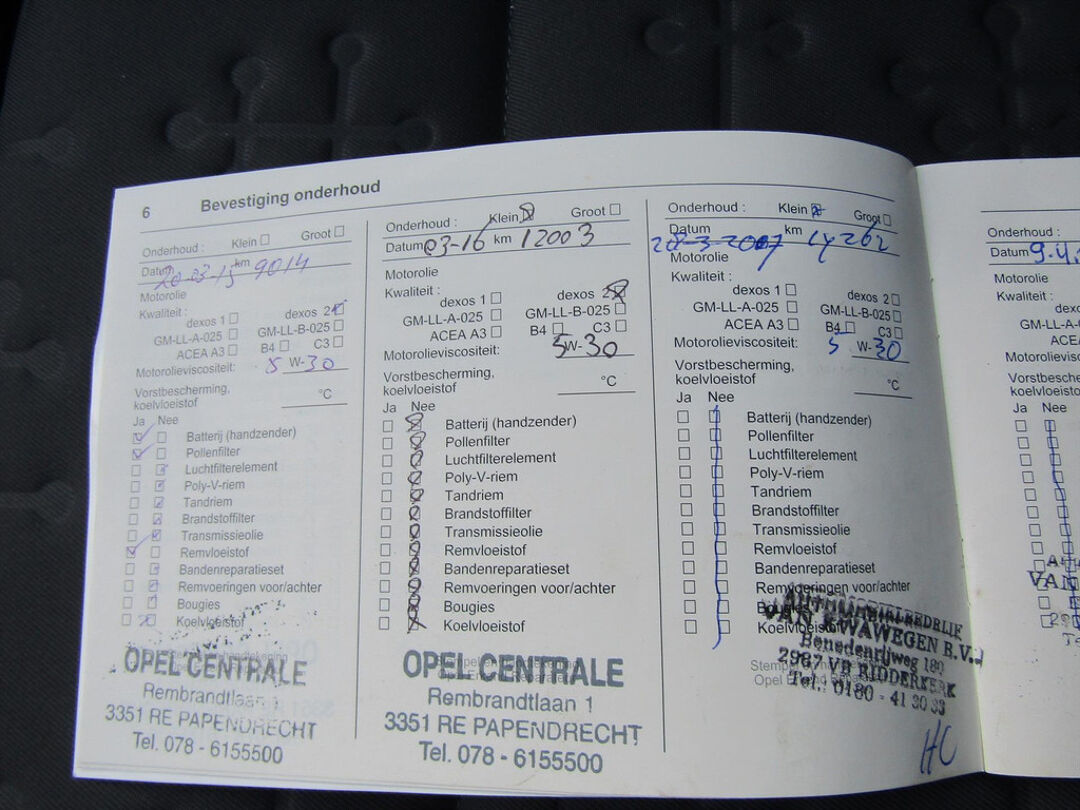 6 Bevestiging onderhoud
Onderhoud : Klein Groot
Datum 20-03-15 km 9014
Motorolie
Kwaliteit :
dexos 1 dexos 2
GM-LL-A-025 GM-LL-B-025
ACEA A3 B4 C3
Motorolieviscositeit: 5 W-30
Vorstbescherming,
koelvloeistof °C
Ja Nee
Batterij (handzender)
Pollenfilter
Luchtfilterelement
Poly-V-riem
Tandriem
Brandstoffilter
Transmissieolie
Remvloeistof
Bandenreparatieset
Remvoeringen voor/achter
Bougies
Koelvloeistof
OPEL CENTRALE
Rembrandtlaan 1
3351 RE PAPENDRECHT
Tel. 078 - 6155500
Onderhoud : Klein Groot
Datum 03-16 km 12003
Motorolie
Kwaliteit :
dexos 1 dexos 2
GM-LL-A-025 GM-LL-B-025
ACEA A3 B4 C3
Motorolieviscositeit: 5W-30
Vorstbescherming,
koelvloeistof °C
Ja Nee
Batterij (handzender)
Pollenfilter
Luchtfilterelement
Poly-V-riem
Tandriem
Brandstoffilter
Transmissieolie
Remvloeistof
Bandenreparatieset
Remvoeringen voor/achter
Bougies
Koelvloeistof
OPEL CENTRALE
Rembrandtlaan 1
3351 RE PAPENDRECHT
Tel. 078 - 6155500
Onderhoud : Klein Groot
Datum km
28-3-2007 14262
Motorolie
Kwaliteit :
dexos 1 dexos 2
GM-LL-A-025 GM-LL-B-025
ACEA A3 B4 C3
Motorolieviscositeit: 5 W-30
Vorstbescherming,
koelvloeistof °C
Ja Nee
Batterij (handzender)
Pollenfilter
Luchtfilterelement
Poly-V-riem
Tandriem
Brandstoffilter
Transmissieolie
Remvloeistof
Bandenreparatieset
Remvoeringen voor/achter
Bougies
Koelvloeistof
AUTOMOBIELBEDRIJF
VAN KWAWEGEN B.V.
Benedenrijweg 180
2987 VB RIDDERKERK
Tel.: 0180 - 41 30 33
Stempel
Opel
HC
Onderhoud :
Datum 9.4.
Motorolie
Kwaliteit :
GM-LL-A
ACEA
Motorolievisco
Vorstbesche
koelvloeistof
Ja Nee
VAN